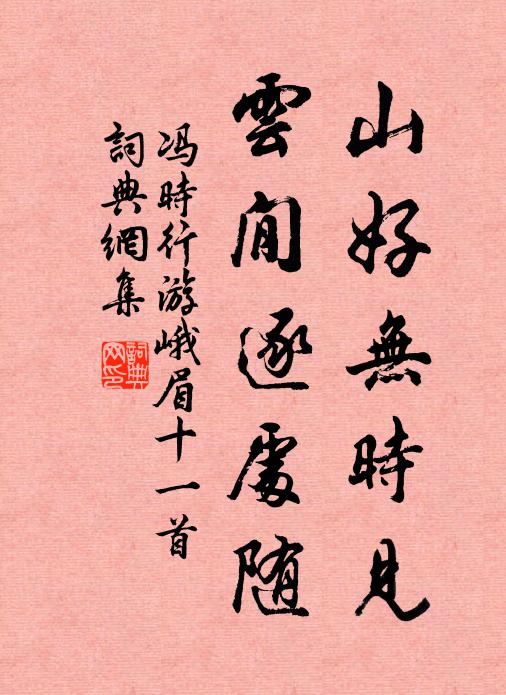 山好無時見
雲閒逐處随
冯時行游峨眉十一首
詞典網集
詞典网印